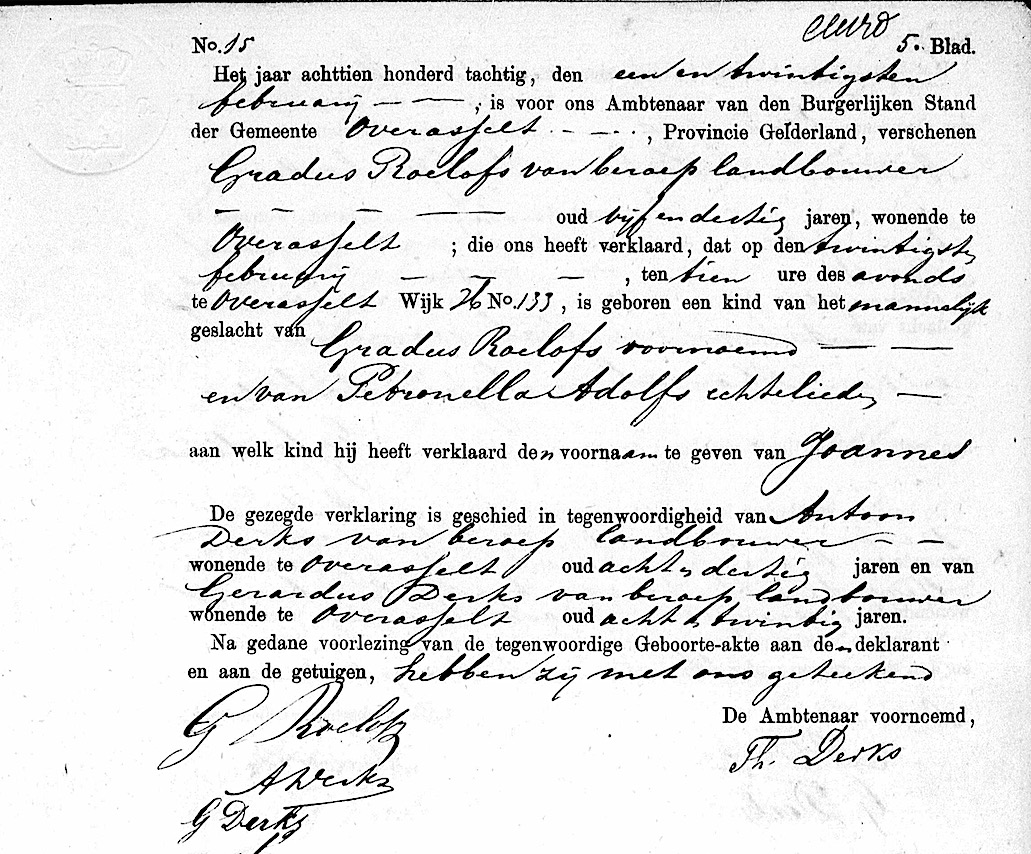 No. 15 5. Blad.
Het jaar achttien honderd tachtig, den een en twintigsten
februarij — — , is voor ons Ambtenaar van den Burgerlijken Stand
der Gemeente Overasselt - — - , Provincie Gelderland, verschenen
Gradus Roelofs van beroep landbouwer
— — — — oud vijf en dertig jaren, wonende te
Overasselt ; die ons heeft verklaard, dat op den twintigsten
februarij — — — , ten tien ure des avonds
te Overasselt Wijk No. 133, is geboren een kind van het mannelijk
geslacht van
Gradus Roelofs voornoemd — —
en van Petronella Adolfs echtelieden —
aan welk kind hij heeft verklaard den voornaam te geven van Joannes
De gezegde verklaring is geschied in tegenwoordigheid van Antoon
Derks van beroep landbouwer — —
wonende te Overasselt oud acht en dertig jaren en van
Gerardus Derks van beroep landbouwer
wonende te Overasselt oud acht en twintig jaren.
Na gedane voorlezing van de tegenwoordige Geboorte-akte aan den deklarant
en aan de getuigen, hebben zij met ons geteekend
De Ambtenaar voornoemd,
G Roelofs
Th. Derks
A Derks
G Derks